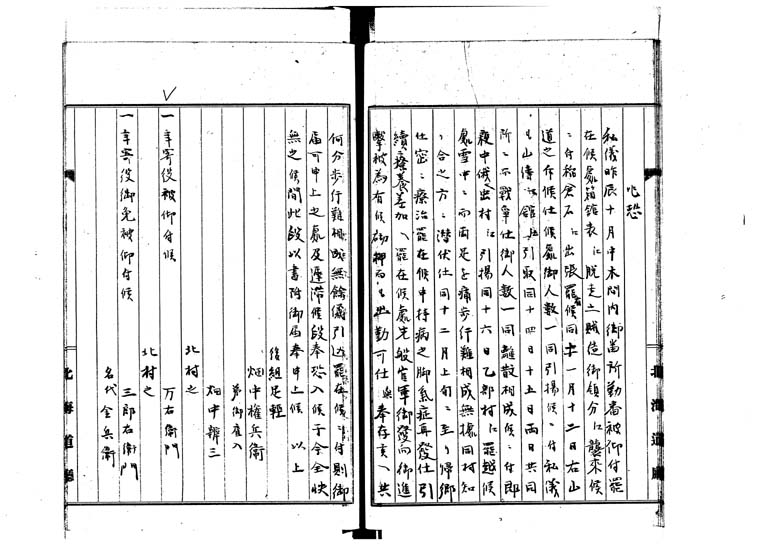 乍恐
私儀昨辰十月中木間内御番所勤番被御付罷
在候處箱館表江脱走之賊徒御領分江襲来候
ニ付稲倉石江出張罷在候同十一月十二日右山
道之存候仕候處御人数一同引揚候ニ付私儀
も山濤江館共引取同十四日十五日両日共同
所ニ而戰爭仕御人数一同離散相成候ニ付即
親中俄出村江引揚同十六日乙部村江罷越候
處雪中ニ而両足を痛歩行難相成無據同村知
合之方ニ潜伏仕同十二月上旬ニ至り帰郷
仕密ニ療治罷在候中持病之脚氣症再發仕引
續療養差加へ罷在候處先般官軍御發向御進
撃被為有候砌押而も出勤可仕與奉存候へ共
何分歩行難相成無餘儀引込罷在候ニ付則御
届可申上之處及遲滞候段奉恐入候于今全快
無之候間此段以書附御届奉申上候 以上
後組足輕
畑中權兵衛
弟御雇入
畑中辨三
北村之
一 年寄役被御付候
万右衛門
北村之
一 年寄役御免被御付候
三郎右衛門
名代 金兵衛
北海道廳
北海道廳